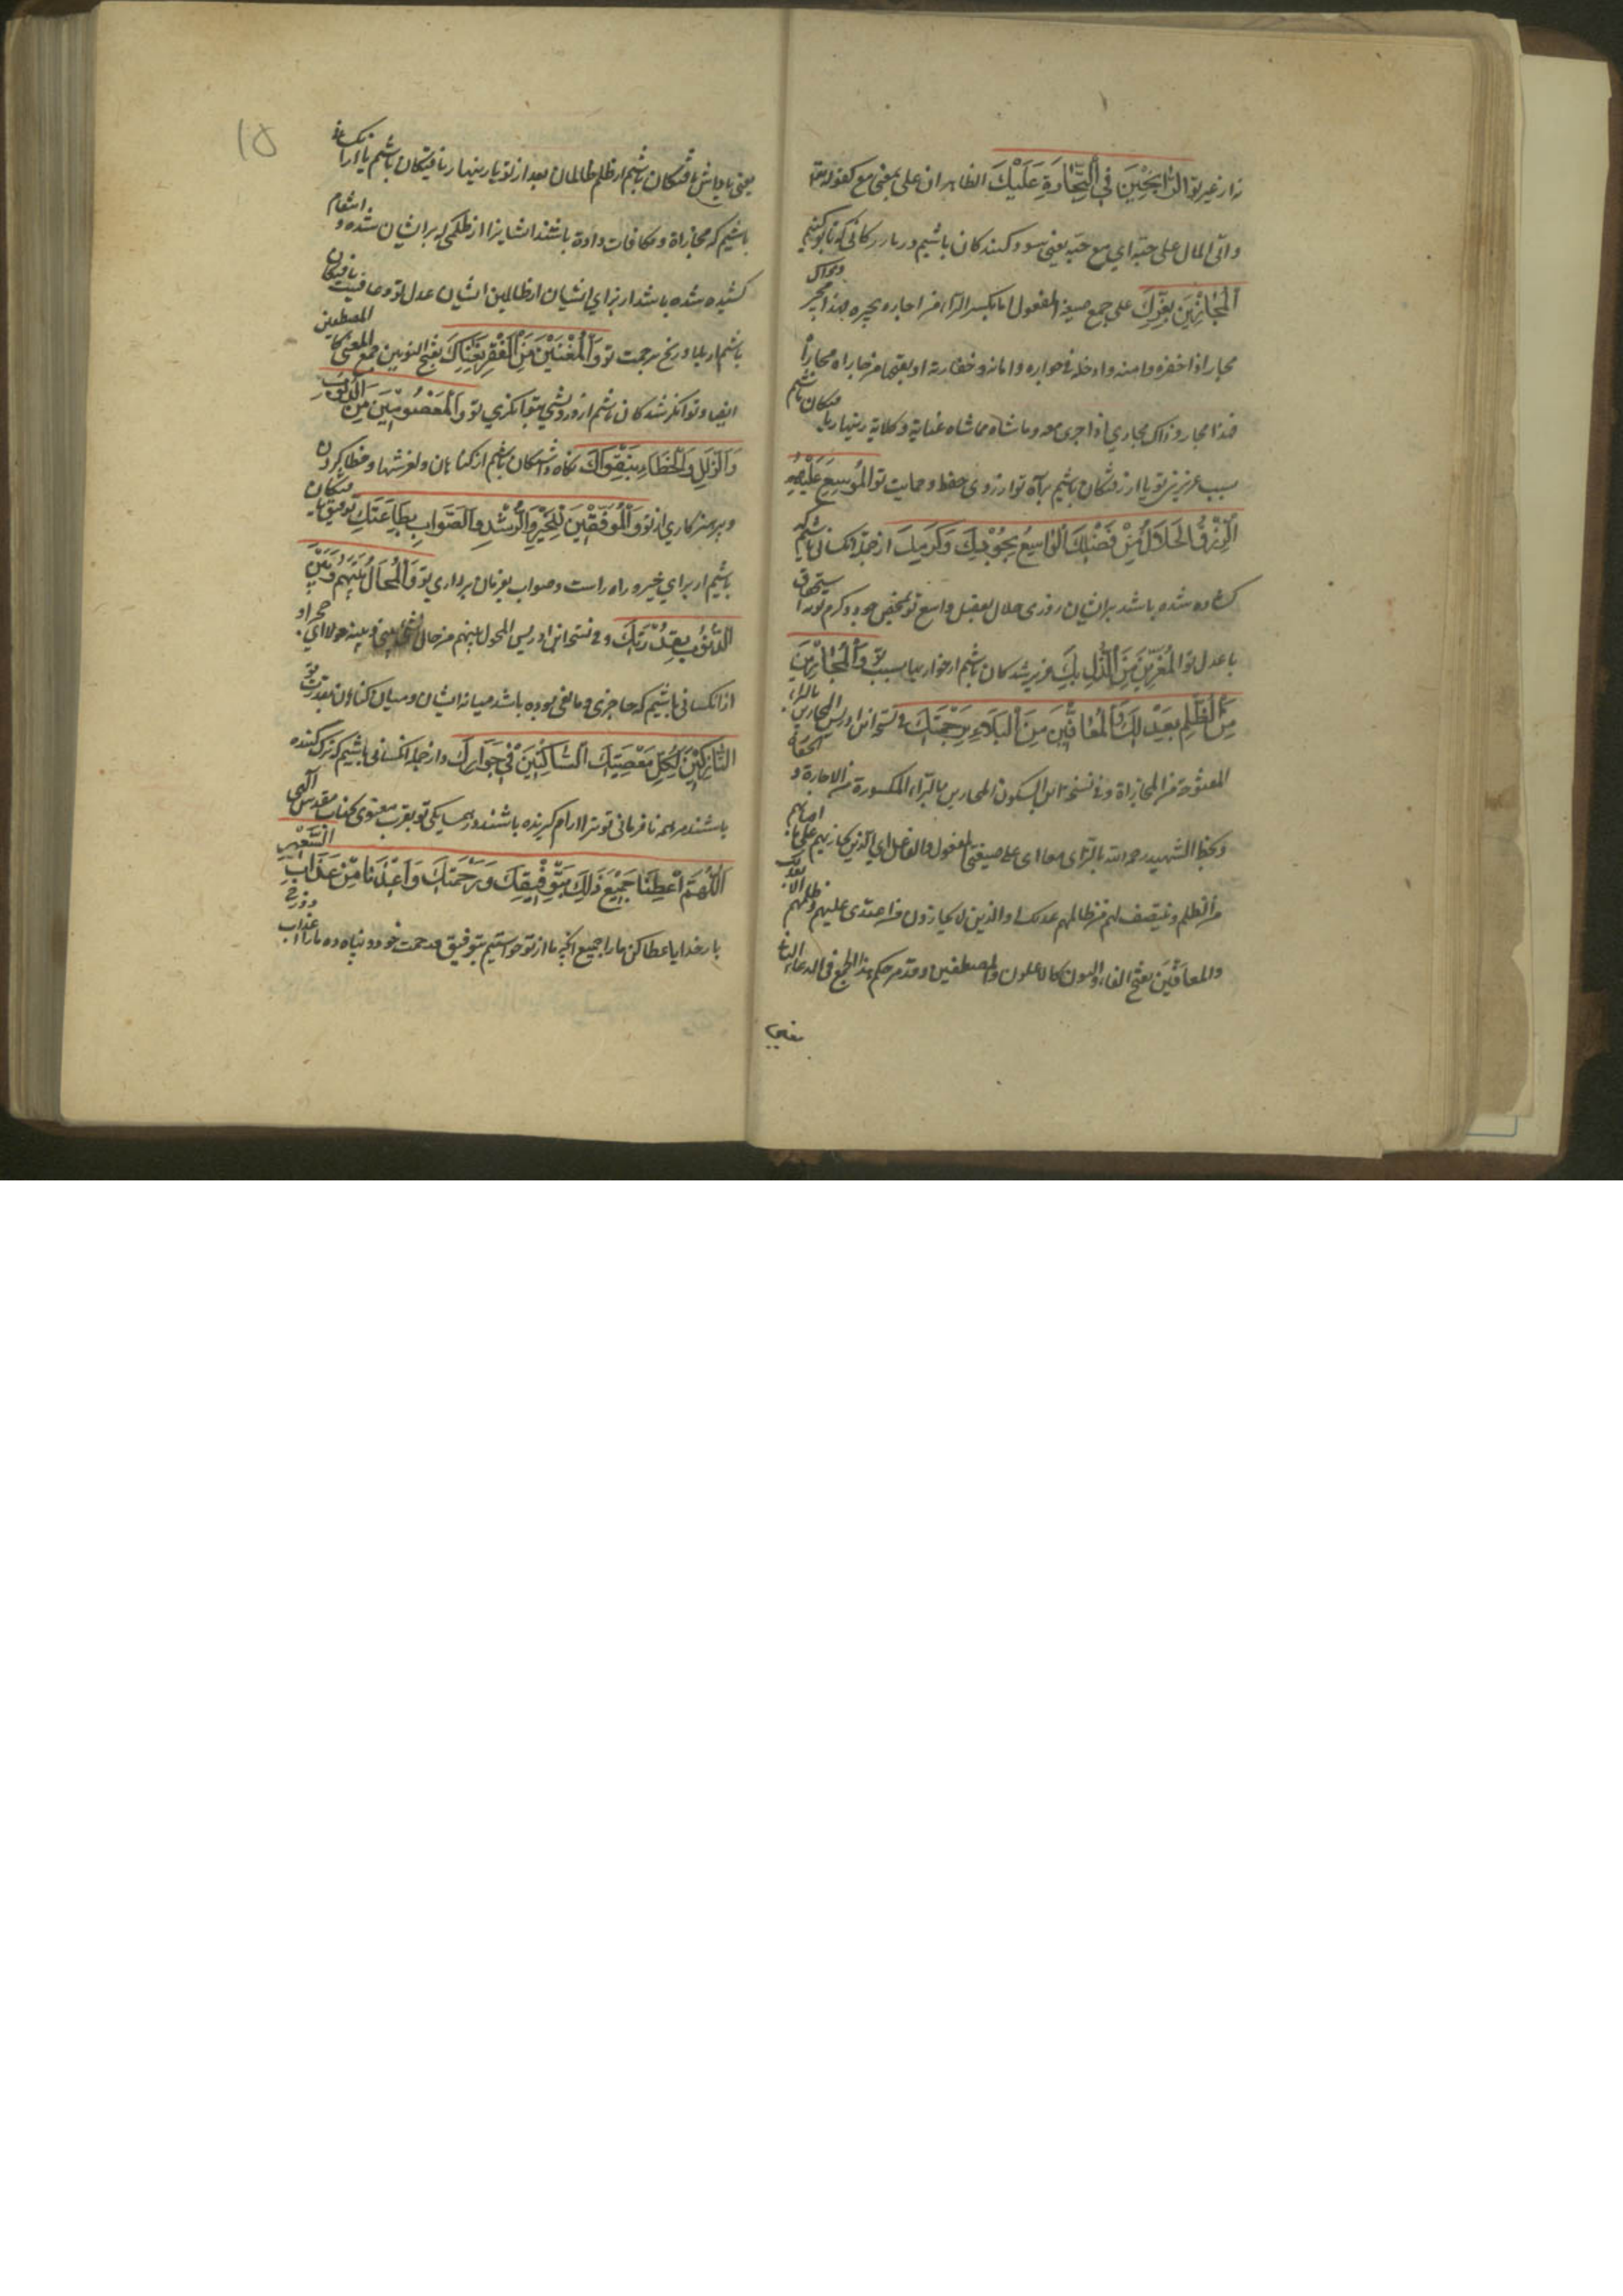 نه از غیر تو الرَّابِحِينَ فِي التِّجَارَةِ عَلَيْكَ الظاهر ان علی بمعنی مع کقوله تع
وآتی المال علی حبه ای مع حبه یعنی سود کنندکان باشیم در بازرکانی که با تو کنیم
الْمُجَارِينَ بِعِزِّكَ علی جمع صیغة المفعول اما بکسر الراء من اجاره یجیره فهذا مجیر وذاک
مجار اذا خفره وامنه وادخله فی جواره وامانه وخفارته او بفتحها من جاراه مجاراة
فهذا مجار وذاک مجاری اذا جری معه وماشاه مماشاه عنایة وکلاءة زینهار یا
فتکان باشیم
بسبب عزیزی تو یا از رفتکان باشیم براه تو از روی حفظ وحمایت تو الْمُوَسَّعِ عَلَيْهِمُ
الرِّزْقُ الْحَلَالُ مِنْ فَضْلِكَ الْوَاسِعِ بِجُودِكَ وَكَرَمِكَ از جمله انکسانی باشیم که
کشاده شده باشد بر ایشان روزی حلال بفضل واسع تو بمحض جود وکرم تو نه استحقاق
با عدل تو الْمُعَزِّينَ مِنَ الذُّلِّ بِكَ عزیز شدکان باشیم از خواریها بسبب تو وَالْمُجَارِينَ
مِنَ الظُّلْمِ بِعَدْلِكَ وَالْمُعَافَيْنَ مِنَ الْبَلَاءِ بِرَحْمَتِكَ فی نسخة ابن ادریس المجازین بالزاء
المفتوحة من المجازاة وفی نسخة ابن السکون المجارین بالراء المکسورة من الاجارة
وبخط الشهید رحمه الله بالزای معا ای علی صیغتی المفعول والفاعل ای الذین تجازیهم علی ما اصابهم
من الظلم وتنتصف لهم من ظالمهم بعدلک او الذین لا یجازون من اعتدی علیهم وظلمهم
والمعافَین بفتح الفاء والنون کالاعلون والمصطفین وقد مر حکم هذا الجمع فی الدعاء
یعنی
۱۵
یعنی پاداش یافتکان باشیم از ظلم ظالمان بعدل تو یا زینهار یافتکان باشیم یا از انکسان
باشیم که مجازاة ومکافات داده باشند ایشانرا از ظلمی که بر ایشان شده و انتقام
کشیده شده باشد از برای ایشان از ظالمین ایشان بعدل تو وعافیت یافتکان
باشیم از بلا ورنج برحمت تو وَالْمُغْنَيْنَ مِنَ الْفَقْرِ بِغِنَاكَ بفتح النونین جمع المغنی کالمصطفین
ایضا وتوانکر شدکان باشیم از درویشی بتوانکری تو وَالْمَعْصُومِينَ مِنَ الذُّنُوبِ
وَالزَّلَلِ وَالْخَطَاءِ بِتَقْوَاكَ نکاه داشتکان باشیم از کناهان ولغزشها وخطا کردن
وپرهیزکاری از تو وَالْمُوَفَّقِينَ لِلْخَيْرِ وَالرُّشْدِ وَالصَّوَابِ بِطَاعَتِكَ توفیق یافتکان
باشیم از برای خیر وراه راست وصواب بفرمان برداری تو وَالْمُحَالِ بَيْنَهُمْ وَبَيْنَ
الذُّنُوبِ بِقُدْرَتِكَ وفی نسخة ابن ادریس المحول بینهم من حال الشئ بینی وبینه حولا ای حجز او
از انکسانی باشیم که حاجزی ومانعی بوده باشد میانه ایشان ومیان کناهان بقدرت تو
التَّارِكِينَ لِكُلِّ مَعْصِيَتِكَ السَّاكِنِينَ فِي جِوَارِكَ واز جمله انکسانی باشیم که ترک کننده
باشند مر همه نافرمانی تو مر ترا وارام کیرنده باشند در همسایکی تو بقرب معنوی بجناب مقدس الهی
اللَّهُمَّ أَعْطِنَا جَمِيعَ ذَلِكَ بِتَوْفِيقِكَ وَرَحْمَتِكَ وَأَعِذْنَا مِنْ عَذَابِ السَّعِيرِ
بار خدایا عطا کن ما را جمیع انچه ما از تو خواستیم بتوفیق ورحمت خود وپناه ده ما را از عذاب دوزخ